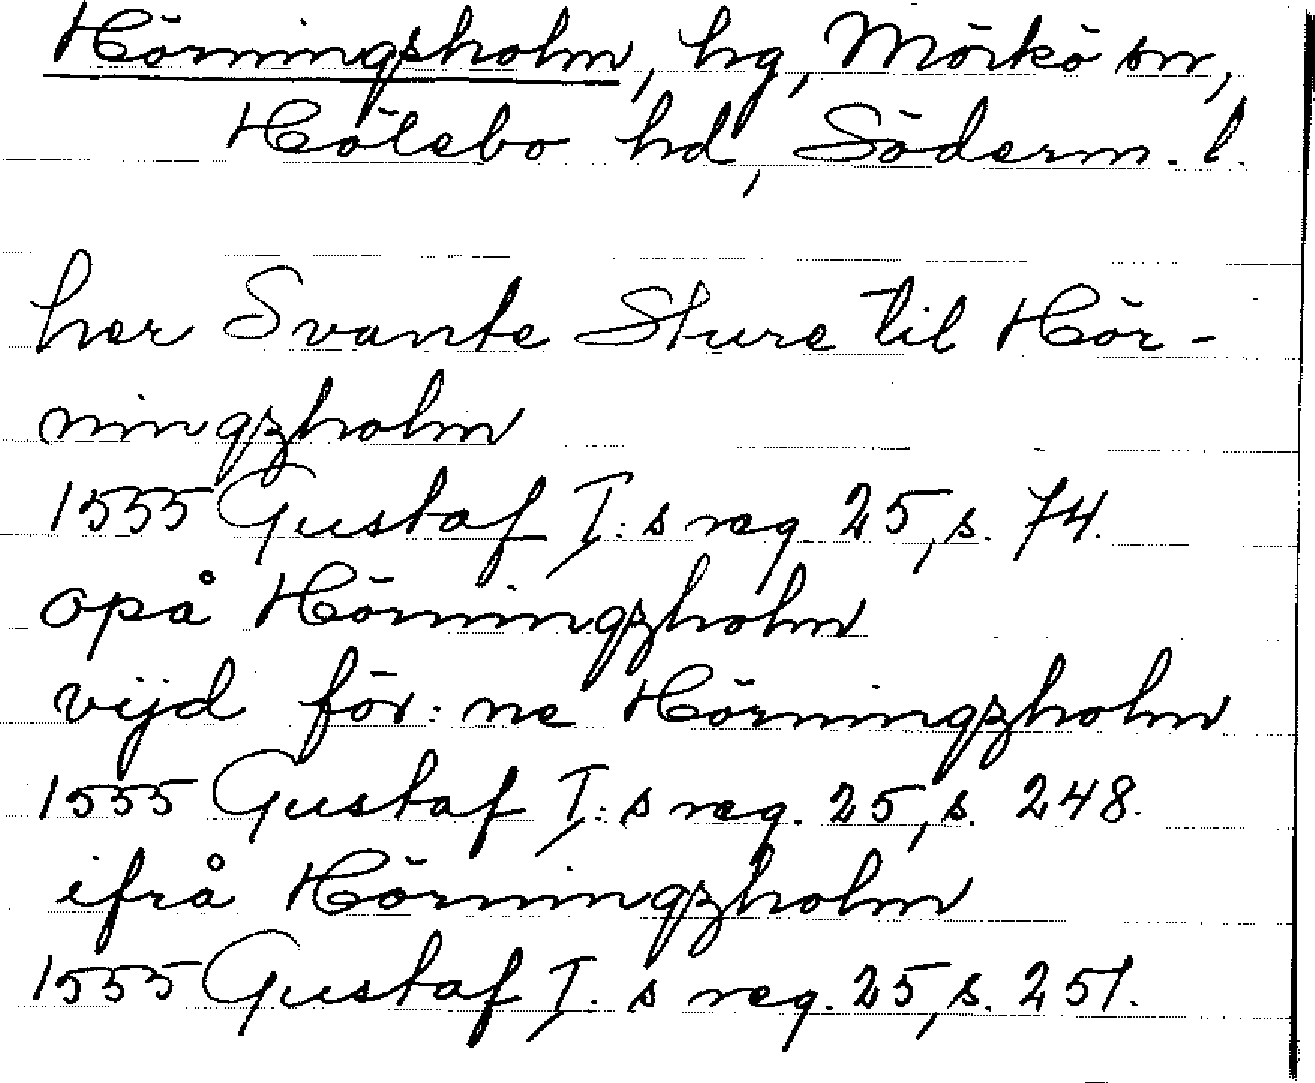 Hörningsholm, hg, Mörkö sn,
Hölebo hd, Söderm. l.
her Svante Sture til Hör-
ningzholm
1555 Gustaf I:s reg. 25, s. 74.
opå Hörningzholm
vijd för:ne Hörningzholm
1555 Gustaf I:s reg. 25, s. 248.
ifrå Hörningzholm
1555 Gustaf I:s reg. 25, s. 251.